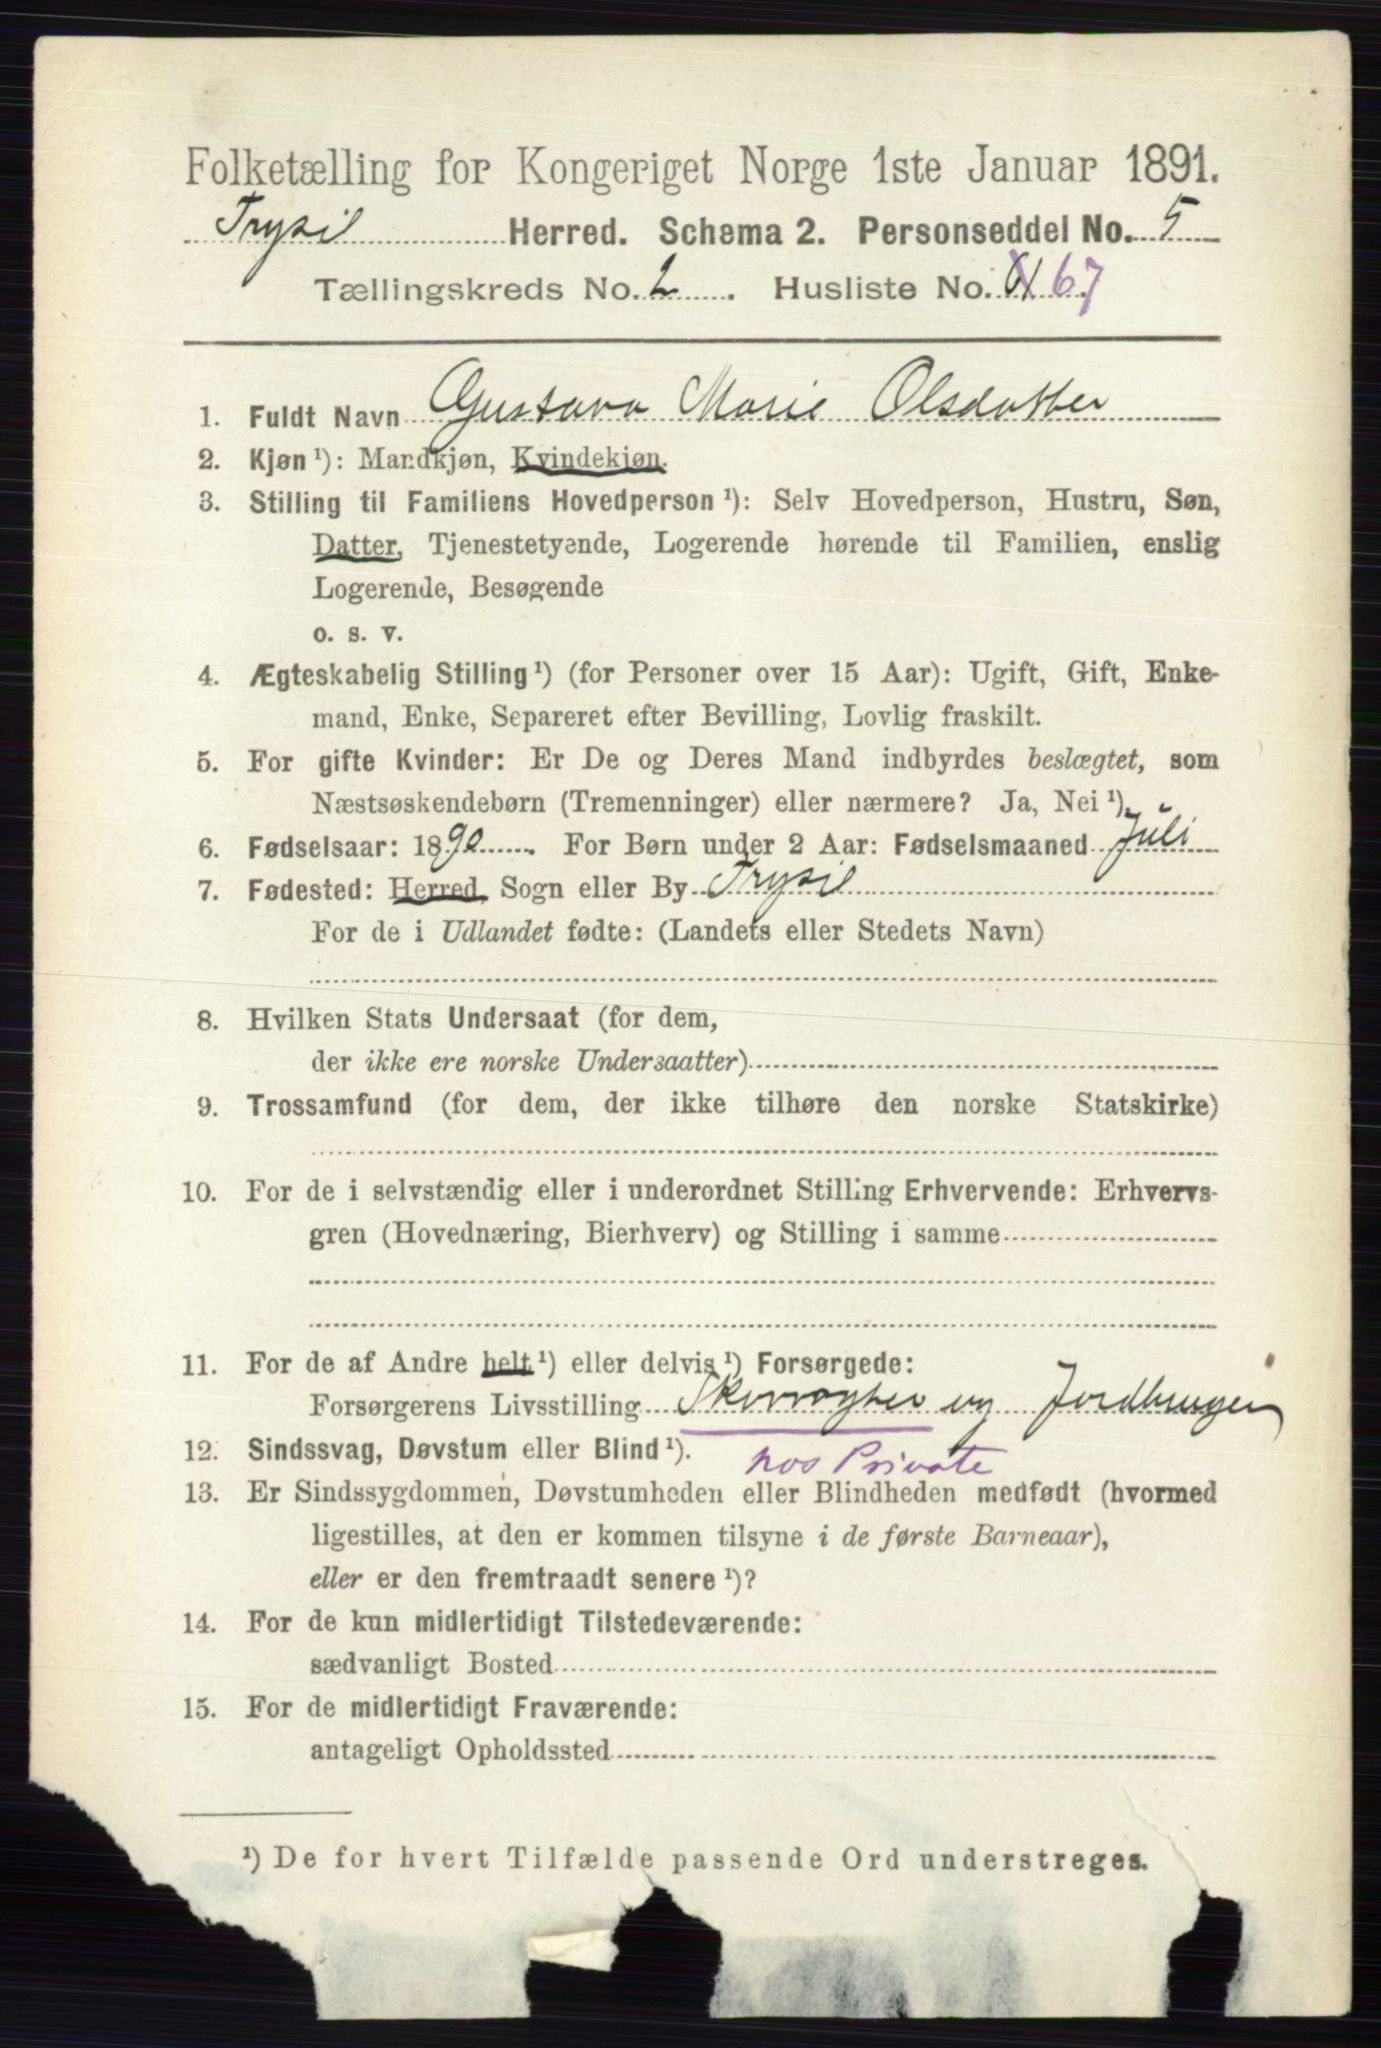 Folketælling for Kongeriget Norge 1ste Januar 1891.
Trysil Herred. Schema 2. Personseddel No. 5
Tællingskreds No. 2. Husliste No. 67
1. Fuldt Navn Gustava Marie Olsdatter
2. Kjøn ¹): Mandkjøn, Kvindekjøn.
3. Stilling til Familiens Hovedperson ¹): Selv Hovedperson, Hustru, Søn,
Datter, Tjenestetyende, Logerende hørende til Familien, enslig
Logerende, Besøgende
o. s. v.
4. Ægteskabelig Stilling ¹) (for Personer over 15 Aar): Ugift, Gift, Enke-
mand, Enke, Separeret efter Bevilling, Lovlig fraskilt.
5. For gifte Kvinder: Er De og Deres Mand indbyrdes beslægtet, som
Næstsøskendebørn (Tremenninger) eller nærmere? Ja, Nei ¹).
6. Fødselsaar: 1890. For Børn under 2 Aar: Fødselsmaaned Juli
7. Fødested: Herred, Sogn eller By Trysil
For de i Udlandet fødte: (Landets eller Stedets Navn)
8. Hvilken Stats Undersaat (for dem,
der ikke ere norske Undersaatter)
9. Trossamfund (for dem, der ikke tilhøre den norske Statskirke)
10. For de i selvstændig eller i underordnet Stilling Erhvervende: Erhvervs-
gren (Hovednæring, Bierhverv) og Stilling i samme
11. For de af Andre helt ¹) eller delvis ¹) Forsørgede:
Forsørgerens Livsstilling og Jordbruger
12. Sindssvag, Døvstum eller Blind ¹). hos Private
13. Er Sindssygdommen, Døvstumheden eller Blindheden medfødt (hvormed
ligestilles, at den er kommen tilsyne i de første Barneaar),
eller er den fremtraadt senere ¹)?
14. For de kun midlertidigt Tilstedeværende:
sædvanligt Bosted
15. For de midlertidigt Fraværende:
antageligt Opholdssted
¹) De for hvert Tilfælde passende Ord understreges.